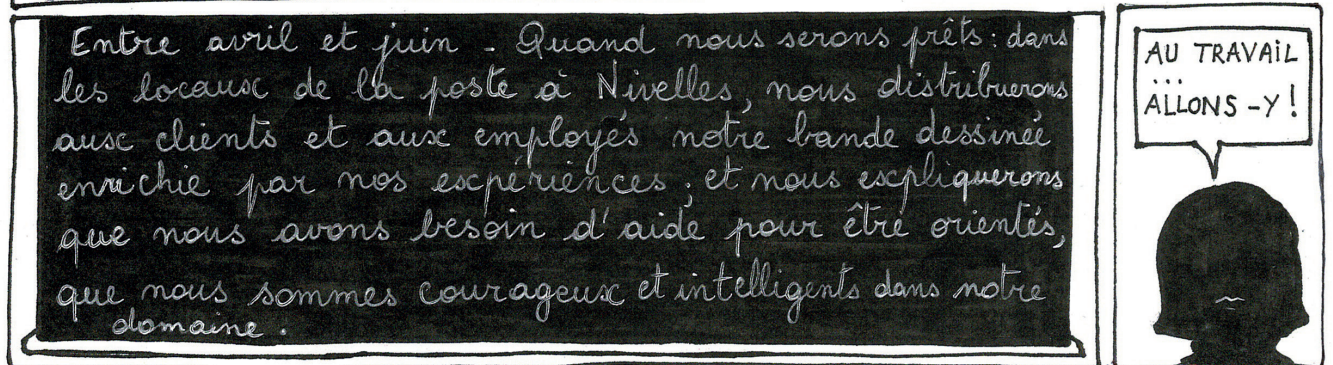 Entre avril et juin - Quand nous serons prêts : dans
les locaux de la poste à Nivelles, nous distribuerons
aux clients et aux employés notre bande dessinée
enrichie par nos expériences ; et nous expliquerons
que nous avons besoin d'aide pour être orientés,
que nous sommes courageux et intelligents dans notre
domaine.
AU TRAVAIL
...
ALLONS-Y !